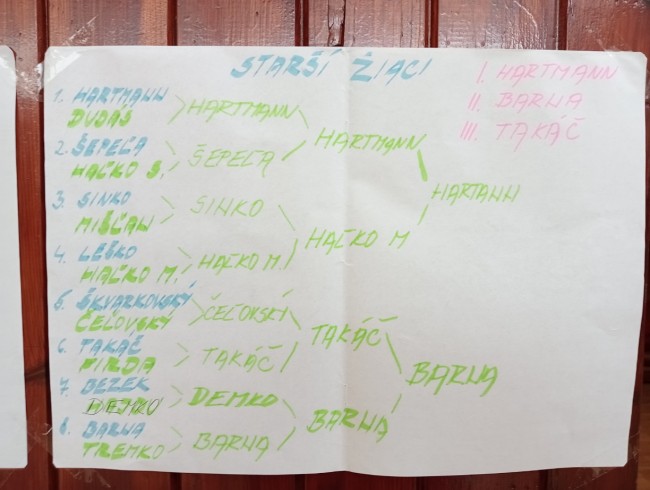 STARŠÍ ŽIACI
I. HARTMANN
II. BARNA
III. TAKÁČ
1. HARTMANN
DUDÁŠ
2. ŠEPEĽA
HAĽKO S.
3. SINKO
MIŠČAN
4. LEŠKO
HAĽKO M.
5. ŠKVARKOVSKÝ
ČEĽOVSKÝ
6. TAKÁČ
FIRDA
7. BEZEK
DEMKO
8. BARNA
TREMKO
HARTMANN
ŠEPEĽA
SINKO
HAĽKO M.
ČEĽOVSKÍ
TAKÁČ
DEMKO
BARNA
HARTMANN
HAĽKO M
TAKÁČ
BARNA
HARTANN
BARNA